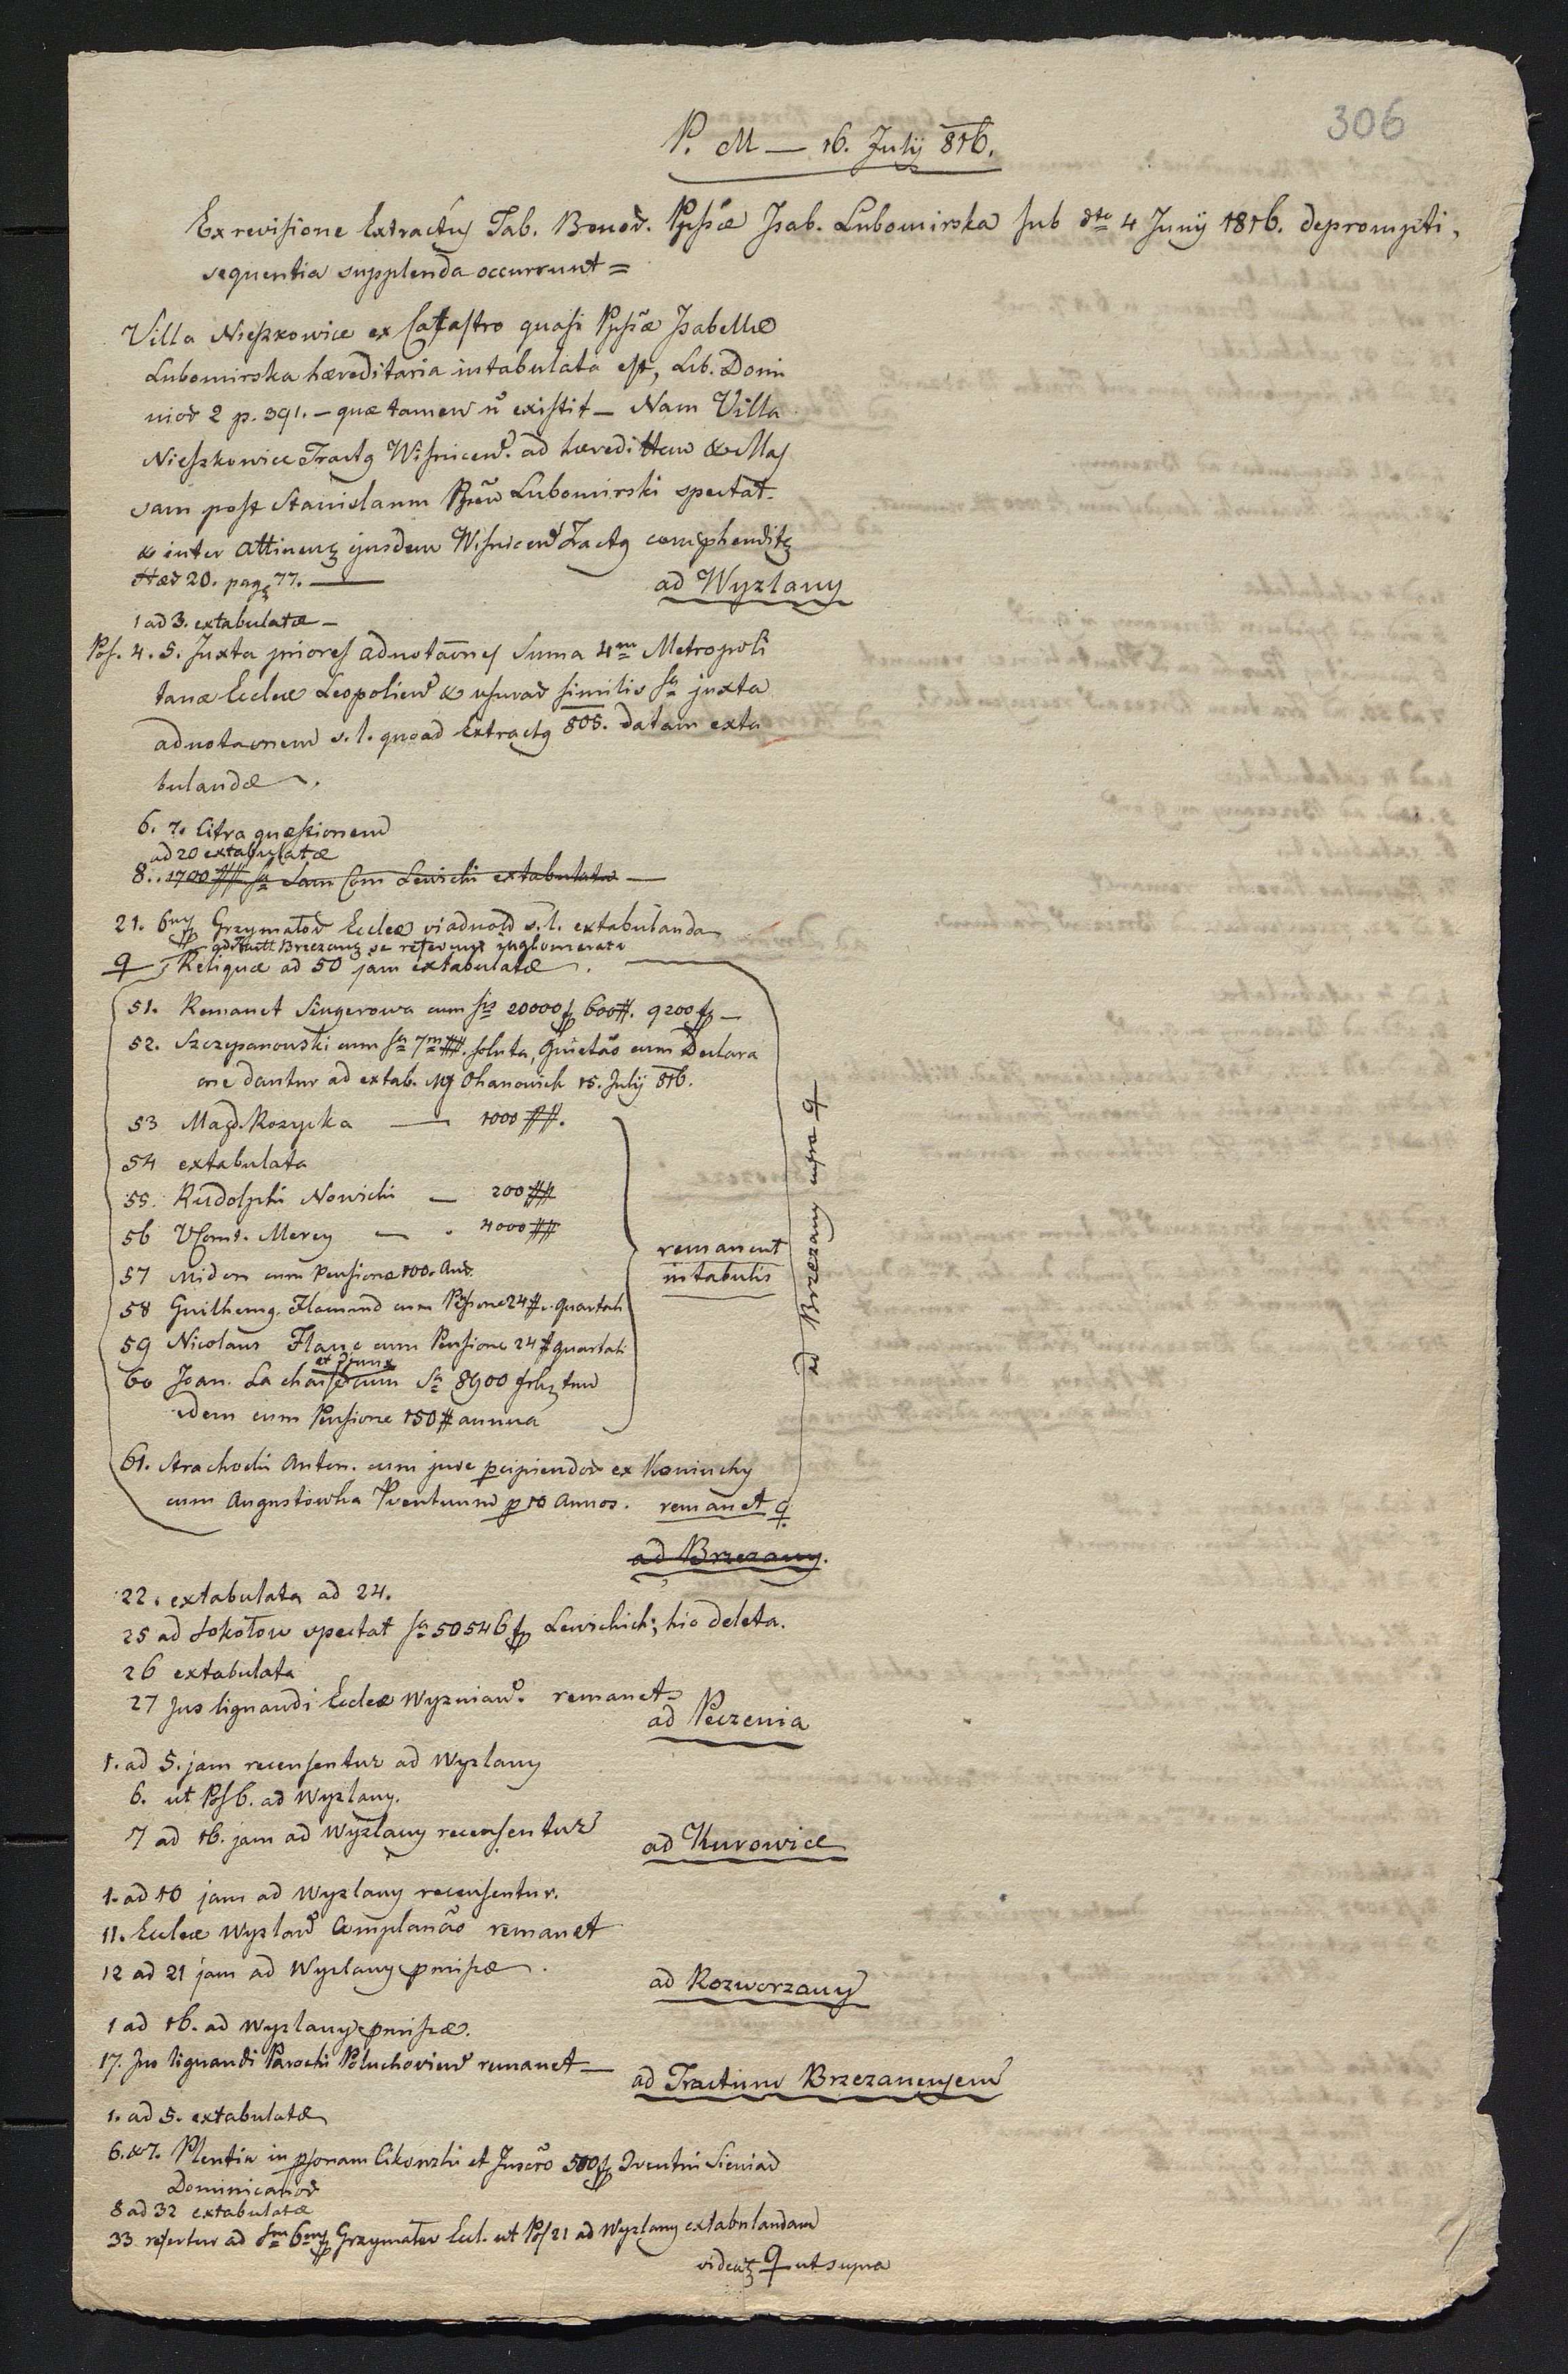 306
P. M — 16. July 816.
Ex revisione Extractus Tab. Bonor. Ppssae Isab. Lubomirska sub dto 4 Juny 1816. deprompti,
sequentia supplenda occurrunt =
Villa Nieszkowice ex Catastro quasi Ppssae Isabellae
Lubomirska haereditaria intabulata est, Lib. Domi
nior 2 p. 391. — quae tamen no existit — Nam Villa
Nieszkowice Tractg Wisnicen. ad haeredittem & Mas
sam post Stanislaum Lubomirski spectat
& inter Attinenz ejusdem Wisnicen Tractg comphenditz
Haer 20. pag 77. —
ad Wyzlany
1 ad 3. extabulatae —
Pos. 4. 5. Juxta priores adnotaones Suma 4m Metropoli
tanae Eccleae Leopolien & usurar similis sa juxta
adnotaonem s. l. quoad Extractg 805. datam exta
bulandae.
6. 7. Citra quaestionem
ad 20 extabulatae
8.. 1700 ## sa Sam Com Lewicki extabulata —
21. 6m Grzymałow Eccleae s. l. extabulanda
ad Brzezany se referunt
Reliquae ad 50 jam extabulatae.
51. Remanet Singerowa cum sis 20000 f 600 #. 9200 f —
52. Szczepanowski cum sa 7m ##. soluta, Quietao cum Declara
one dantur ad extab. Mg Ohanowich 15. July 816.
53 Magd. Kozycka — 1000 ##.
54 extabulata
55. Rudolphi Nowicki — 200 ##
56 VComt. Mercy — . 4000 ##
57 Miden cum Pensione 100. Aur.
58 Guilhemg. Flamand cum Pnsione 24 #. quartali
59 Nicolaus Flanc cum Pensione 24 # quartali
et
60 Joan. La chaise cum Sa 8900
idem cum Pensione 150 # annua
remanent
in tabulis
ad Brzezany supra
61. Strachocki Anton. cum jure pcipiendor ex Koniuchy
cum Augustowka Pventuum p 10 Annos. remanet
ad Brzezany.
22. extabulata ad 24.
25 ad Sokołow spectat sa 50546 f Lewickich; hic deleta.
26 extabulata
27 Jus lignandi Eccleae Wyznian. remanet
ad Peczenia
1. ad 5. jam recensentur ad Wyzlany
6. ut Pos 6. ad Wyzlany.
7 ad 16. jam ad Wyzlany recensentur
ad Kurowice
1. ad 10 jam ad Wyzlany recensentur.
11. Eccleae Wyzlan Complanao remanet
12 ad 21 jam ad Wyzlany pmissae.
ad Rozworzany
1 ad 16. ad Wyzlany pmissae.
17. Jus lignandi Parochi Poluchovien remanet —
ad Tractum Brzezanensem
1. ad 5. extabulatae
6. & 7. Plentia in psonam Cikowski et Inscro 500 f Dventui Sieniad
Dominicanor
8 ad 32 extabulatae
33 refertur ad Sm 6m Grzymałow Eccl. ut Pos 21 ad Wyzlany extabulandam
videatz ut supra